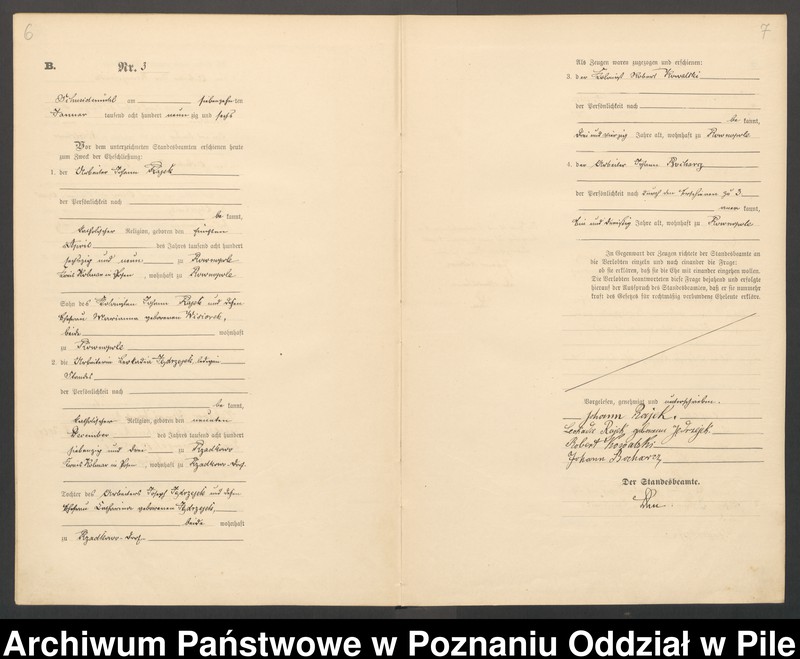 6
B. Nr. 3
Schneidemühl am siebenzehnten
Januar tausend acht hundert neunzig und sechs
Vor dem unterzeichneten Standesbeamten erschienen heute
zum Zweck der Eheschließung:
1. der Arbeiter Johann Rajek
der Persönlichkeit nach
be kannt,
katholischer Religion, geboren den fünften
April des Jahres tausend acht hundert
sechszig und neun zu Rownopole
Kreis Kolmar in Posen, wohnhaft zu Rownopole
Sohn des Johann Rajek und dessen
Ehefrau Marianna geborenen Wisiorek,
beide wohnhaft
zu Rownopole
2. die Arbeiterin Leokadia Jędrzejek, ledigen
Standes
der Persönlichkeit nach
be kannt,
katholischer Religion, geboren den neunten
December des Jahres tausend acht hundert
siebenzig und drei zu Rzadkowo
Kreis Kolmar in Posen, wohnhaft zu Rzadkowo-Dorf
Tochter des Arbeiters Joseph Jędrzejek und dessen
Ehefrau Catharina geborenen Jędrzejek,
beide wohnhaft
zu Rzadkowo-Dorf
7
Als Zeugen waren zugezogen und erschienen:
3. der Robert Kowalski
der Persönlichkeit nach
be kannt,
drei und vierzig Jahre alt, wohnhaft zu Rownopole
4. der Arbeiter Johann Bocharcz
der Persönlichkeit nach durch den Erschienenen zu 3
aner kannt,
und dreißig Jahre alt, wohnhaft zu Rownopole
In Gegenwart der Zeugen richtete der Standesbeamte an
die Verlobten einzeln und nach einander die Frage:
ob sie erklären, daß sie die Ehe mit einander eingehen wollen.
Die Verlobten beantworteten diese Frage bejahend und erfolgte
hierauf der Ausspruch des Standesbeamten, daß er sie nunmehr
kraft des Gesetzes für rechtmäßig verbundene Eheleute erkläre.
Vorgelesen, genehmigt und unterschrieben.
Johann Rajek.
Rajek geborene
Robert Kowalski
Johann Bocharcz
Der Standesbeamte.
Archiwum Państwowe w Poznaniu Oddział w Pile